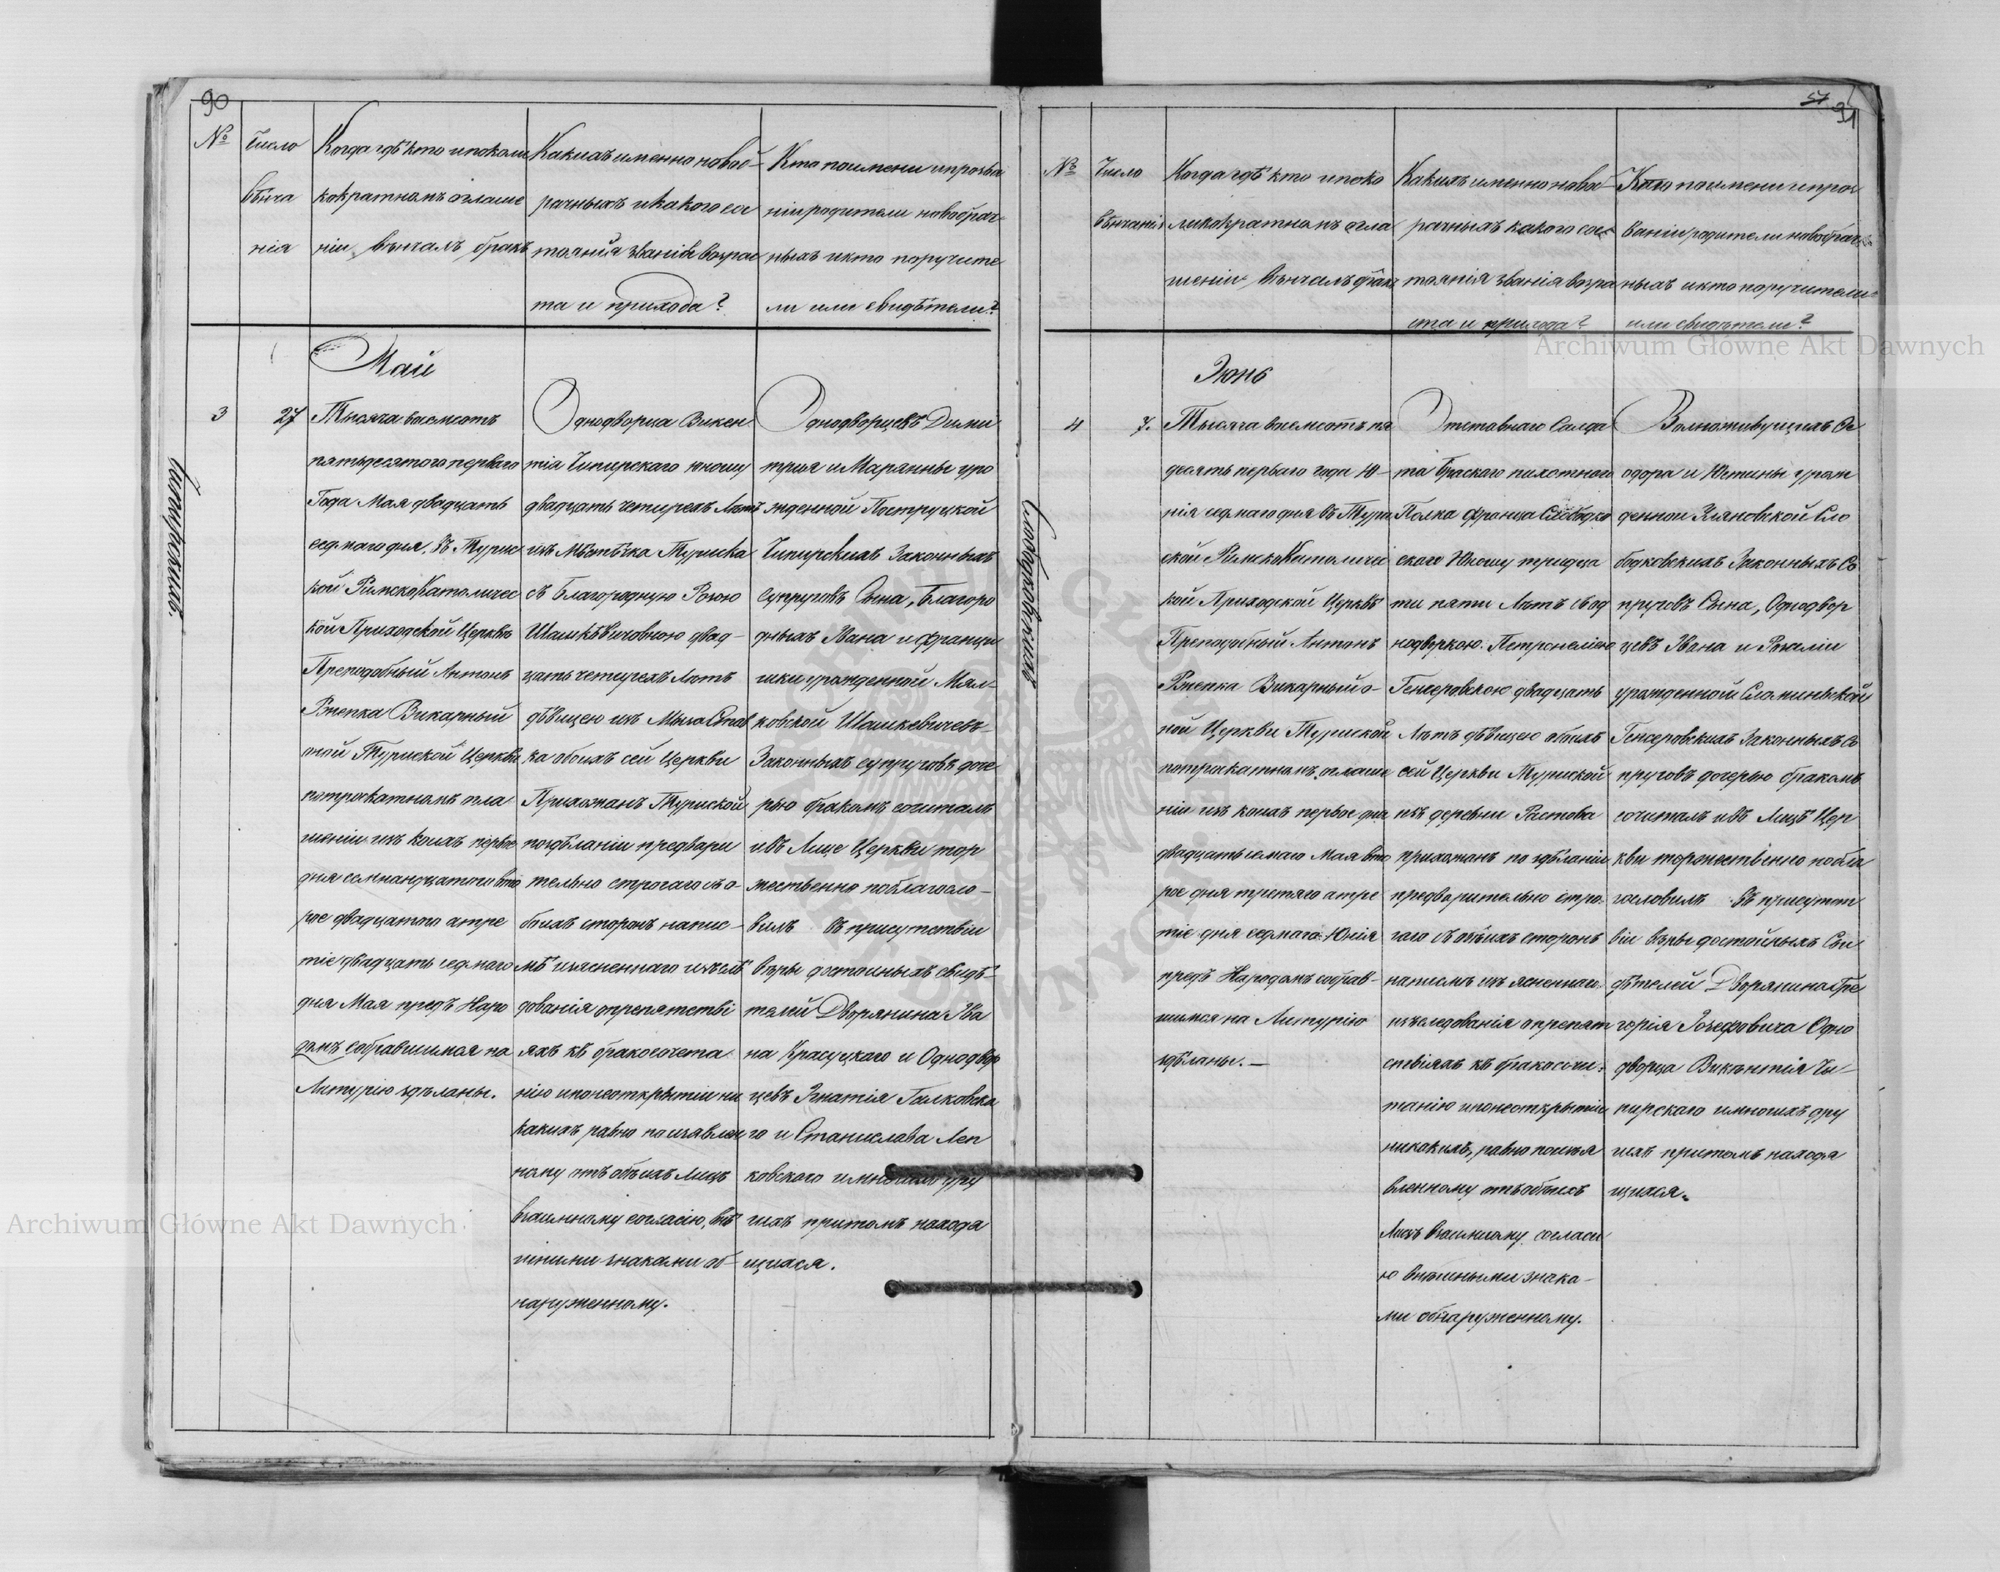 90
№
Число
вѣнча
нія
Когда гдѣ кто и поколи
кократномъ оглаше
ніи вѣнчалъ бракъ
Какихъ именно новоб
рачныхъ и какого сос
тоянія званія возрас
та и прихода?
Кто по имени и прозва
нію родители новобрач
ныхъ и кто поручите
ли или свидѣтели?
Май
Чипирскихъ.
3
27
Тысяча восемсотъ
пятьдесятого перваго
Года Мая двадцать
седмаго дня, въ Турис
кой РимскоКатоличес
кой Приходской Церкви
Преподобный Антонъ
Ржепка Викарный
оной Туриской Церкви
потрократномъ огла
шеніи изъ коихъ первое
дня семнандцатого вто
рое двадцатого а тре
тіе двадцать седмаго
дня Мая предъ Наро
домъ собравшимся на
Литургію здѣланы.
Однодворца Викен
тія Чипирского юношу
двадцать четырехъ Лѣтъ
изъ Мѣстѣчка Туриска
съ Благородную Розою
Шашкѣвичовною двад-
цать четырехъ Лѣтъ
дѣвицею изъ Мыза Став
ка обоихъ сей Церкви
Прихожанъ Туриской
поздѣланіи предвари
тельно строгаго съ о-
боихъ сторонъ напис-
мѣ изъясненнаго изъслѣ
дованія опрепятстві
яхъ къ бракосочета
нію и понеоткрытіи ни
какихъ равно поизъявлен
ному отъ обѣихъ Лицъ
взаимному согласію, внѣ
шними знаками об-
наруженному.
Однодворцевъ Дими
трія и Марянны уро
жденной Поструцкой
Чипирскихъ Законныхъ
Супруговъ Сына, Благоро
дныхъ Ивана и Францы
шки урожденной Мял-
ковской Шашкевичевъ-
Законныхъ супруговъ доче
рью бракомъ сочиталъ
ивъ Лице Церкви тор
жественно поблагосло-
вилъ въ присутствіи
вѣры достойныхъ свидѣ
телей Дворянина Ива
на Красуцкого и Однодвор
цевъ Игнатія Галковска
го и Станислава Леп
ковского и многихъ дру
гихъ притомъ находя
щихся.
57
91
№
Число
вѣнчанія
Когда гдѣ кто и поко
ликократномъ огла
шеніи вѣнчалъ бракъ
Какихъ именно новоб
рачныхъ какого сос
тоянія званія возра
ста и прихода?
Кто по имени и проз
ванію родители новобрач
ныхъ и кто поручители
или свидѣтели?
Archiwum Główne Akt Dawnych
Июнь
Слободковскихъ
4
7.
Тысяча восемсотъ пя
десятъ перваго года Ю-
нія седмаго дня въ Тури
ской РимскоКатоличе
кой Приходской Церквѣ
Преподобный Антонъ
Ржепка Викарный о-
ной Церкви Туриской
потрократномъ оглаше
ніи изъ коихъ первое дня
двадцать семаго Мая вто
рое дня третяго а тре
тіе дня седмаго Юнія
предъ Народомъ собрав-
шимся на Литургію
здѣланы.-
Отставнаго Солда
та Брестского пихотнаго
Полка Франца Слободко
вского Юношу тридца
ти пяти Лѣтъ съ од
нодворкою Петронелією
Генсеровскою двадцать
Лѣтъ дѣвицею обоихъ
сей Церкви Туриской
изъ деревни Растова
прихожанъ по здѣланіи
предворительно стро
гаго съ обѣихъ сторонъ
написмѣ изъясненнаго
изъследованія опрепят
ствіяхъ къ бракосочи-
танію и понеоткрытіи
никакихъ, равно поизъя
вленному отъ обѣихъ
Лицъ взаимному согласі
ю внѣшными знака-
ми обнаруженному.
Волноживущихъ Ѳе
одора и Юстины урож
денной Уляновской Сло
бодковскихъ Законныхъ Су
пруговъ Сына, Однодвор
цевъ Ивана и Розаліи
урожденной Сломинской
Генсеровскихъ Законныхъ Су
пруговъ дочерью бракомъ
сочиталъ ивъ Лицѣ Цер
кви торжественно побла
гословилъ въ присутст
віи вѣры достойныхъ Сви
дѣтелей Дворянина Гре
горія Іозефовича Одно
дворца Викентія Чи-
пирского и многихъ дру
гихъ притомъ находя
щихся.
Archiwum Główne Akt Dawnych